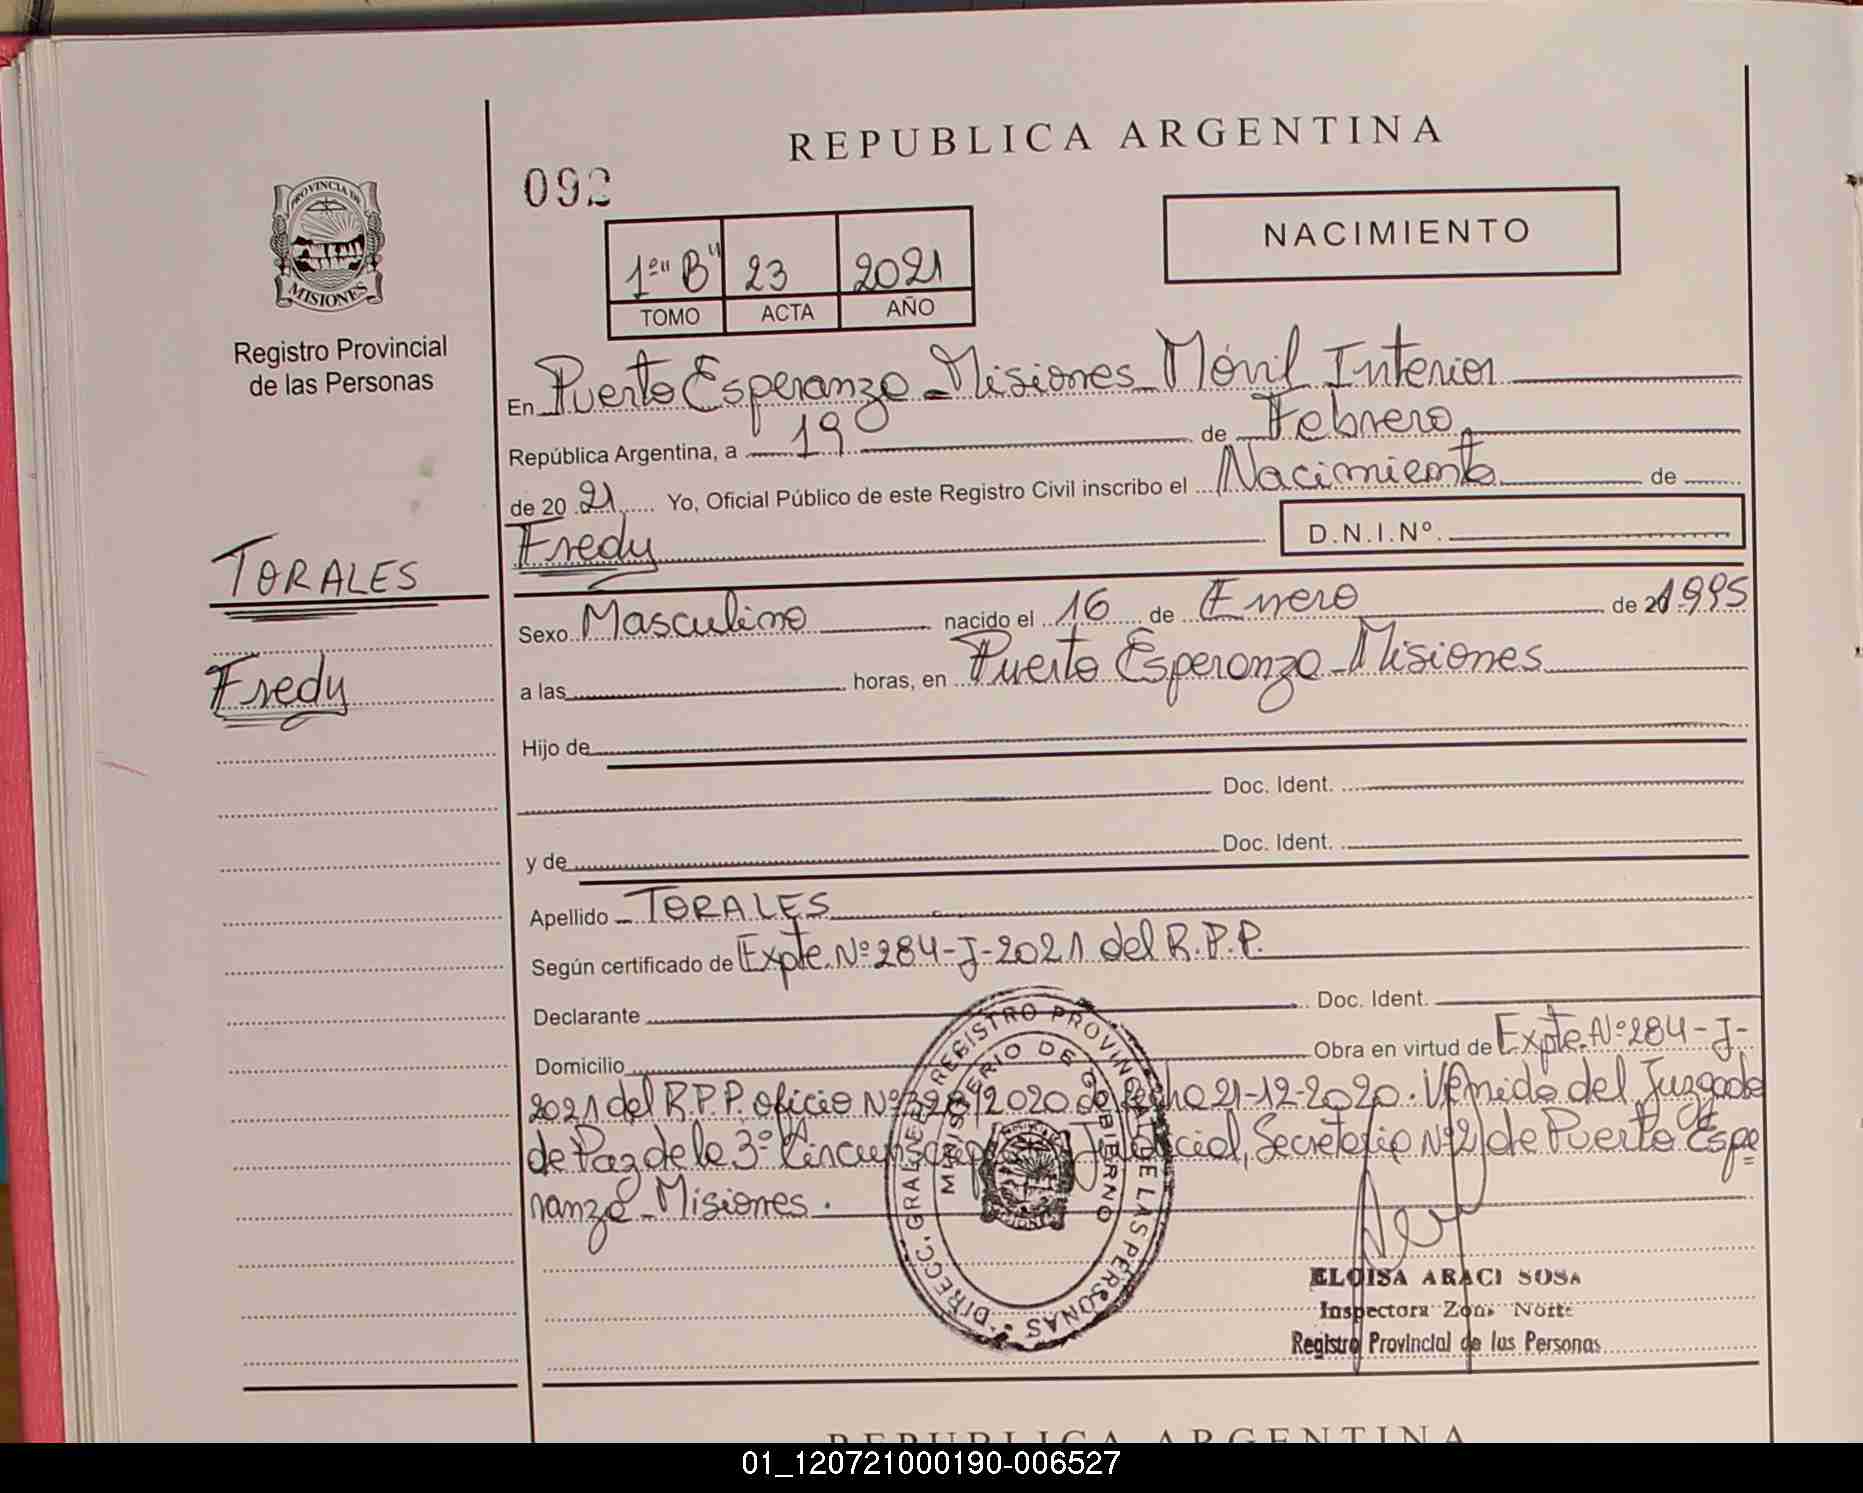 REPUBLICA ARGENTINA
092
PROVINCIA DE
MISIONES
Registro Provincial
de las Personas
1º "B" 23 2021
TOMO ACTA AÑO
NACIMIENTO
En Puerto Esperanza - Misiones - Móvil Interior
República Argentina, a 19 de Febrero
de 20 21 Yo, Oficial Público de este Registro Civil inscribo el Nacimiento de
Fredy D.N.I.Nº.
TORALES
Fredy
Sexo Masculino nacido el 16 de Enero de 1995
a las horas, en Puerto Esperanza - Misiones
Hijo de
Doc. Ident.
y de Doc. Ident.
Apellido TORALES
Según certificado de Expte. Nº 284-J-2021 del R.P.P.
Declarante Doc. Ident.
Domicilio Obra en virtud de Expte. Nº 284-J-
2021 del R.P.P. oficio Nº 2020 de fecha 21-12-2020. Venido del Juzgado
de Paz de la 3º Circunscripción Judicial, Secretaria Nº 2, de Puerto Espe=
ranza - Misiones.
DIRECC. GRAL. DEL REGISTRO PROVINCIAL DE LAS PERSONAS
MINISTERIO DE GOBIERNO
ELOISA ARACI SOSA
Inspectora Zona Norte
Registro Provincial de las Personas
REPUBLICA ARGENTINA
01_120721000190-006527